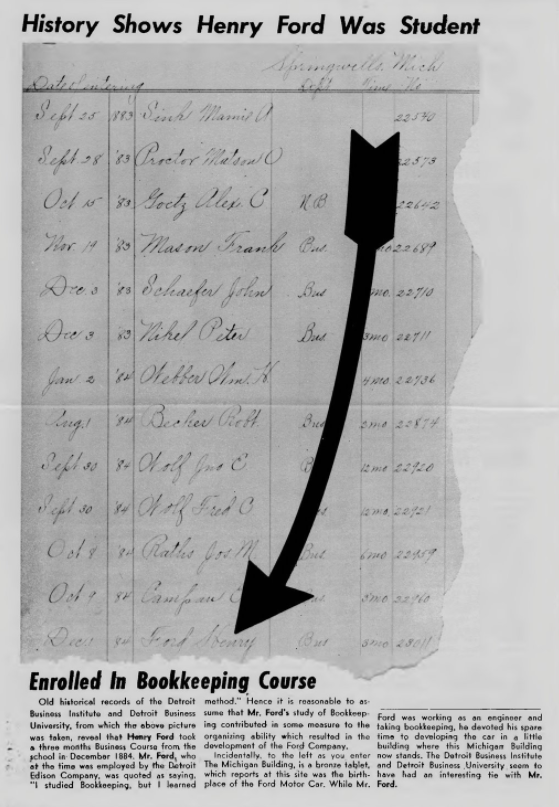 History Shows Henry Ford Was Student
Springwells, Mich
Dates Entering Dept Time No
Sept 25 1883 Sink Mamie A 22540
Sept 28 '83 Proctor Matson O 22573
Oct 15 '83 Goetz Alex. C N B 22642
Nov. 19 '83 Mason Frank Bus mo 22689
Dec 3 '83 Schaefer John Bus mo. 22710
Dec 3 '83 Nikel Peter Bus 3mo. 22711
Jan 2 '84 Webber Wm. H. 4mo. 22736
Aug. 1 '84 Becher Robt. Bus 2mo 22874
Sept 30 '84 Wolf Jno E 12mo 22920
Sept 30 '84 Wolf Fred C 12mo 22921
Oct 8 '84 Jos. M. Bus 6mo 22959
Oct 9 84 Campau 3mo 22960
Dec 1 84 Ford Henry Bus 3mo 23011
Enrolled In Bookkeeping Course
Old historical records of the Detroit
Business Institute and Detroit Business
University, from which the above picture
was taken, reveal that Henry Ford took
a three months Business Course from the
school in December 1884. Mr. Ford, who
at the time was employed by the Detroit
Edison Company, was quoted as saying,
"I studied Bookkeeping, but I learned
method." Hence it is reasonable to as-
sume that Mr. Ford's study of Bookkeep-
ing contributed in some measure to the
organizing ability which resulted in the
development of the Ford Company.
Incidentally, to the left as you enter
The Michigan Building, is a bronze tablet,
which reports at this site was the birth-
place of the Ford Motor Car. While Mr.
Ford was working as an engineer and
taking bookkeeping, he devoted his spare
time to developing the car in a little
building where this Michigan Building
now stands. The Detroit Business Institute
and Detroit Business University seem to
have had an interesting tie with Mr.
Ford.